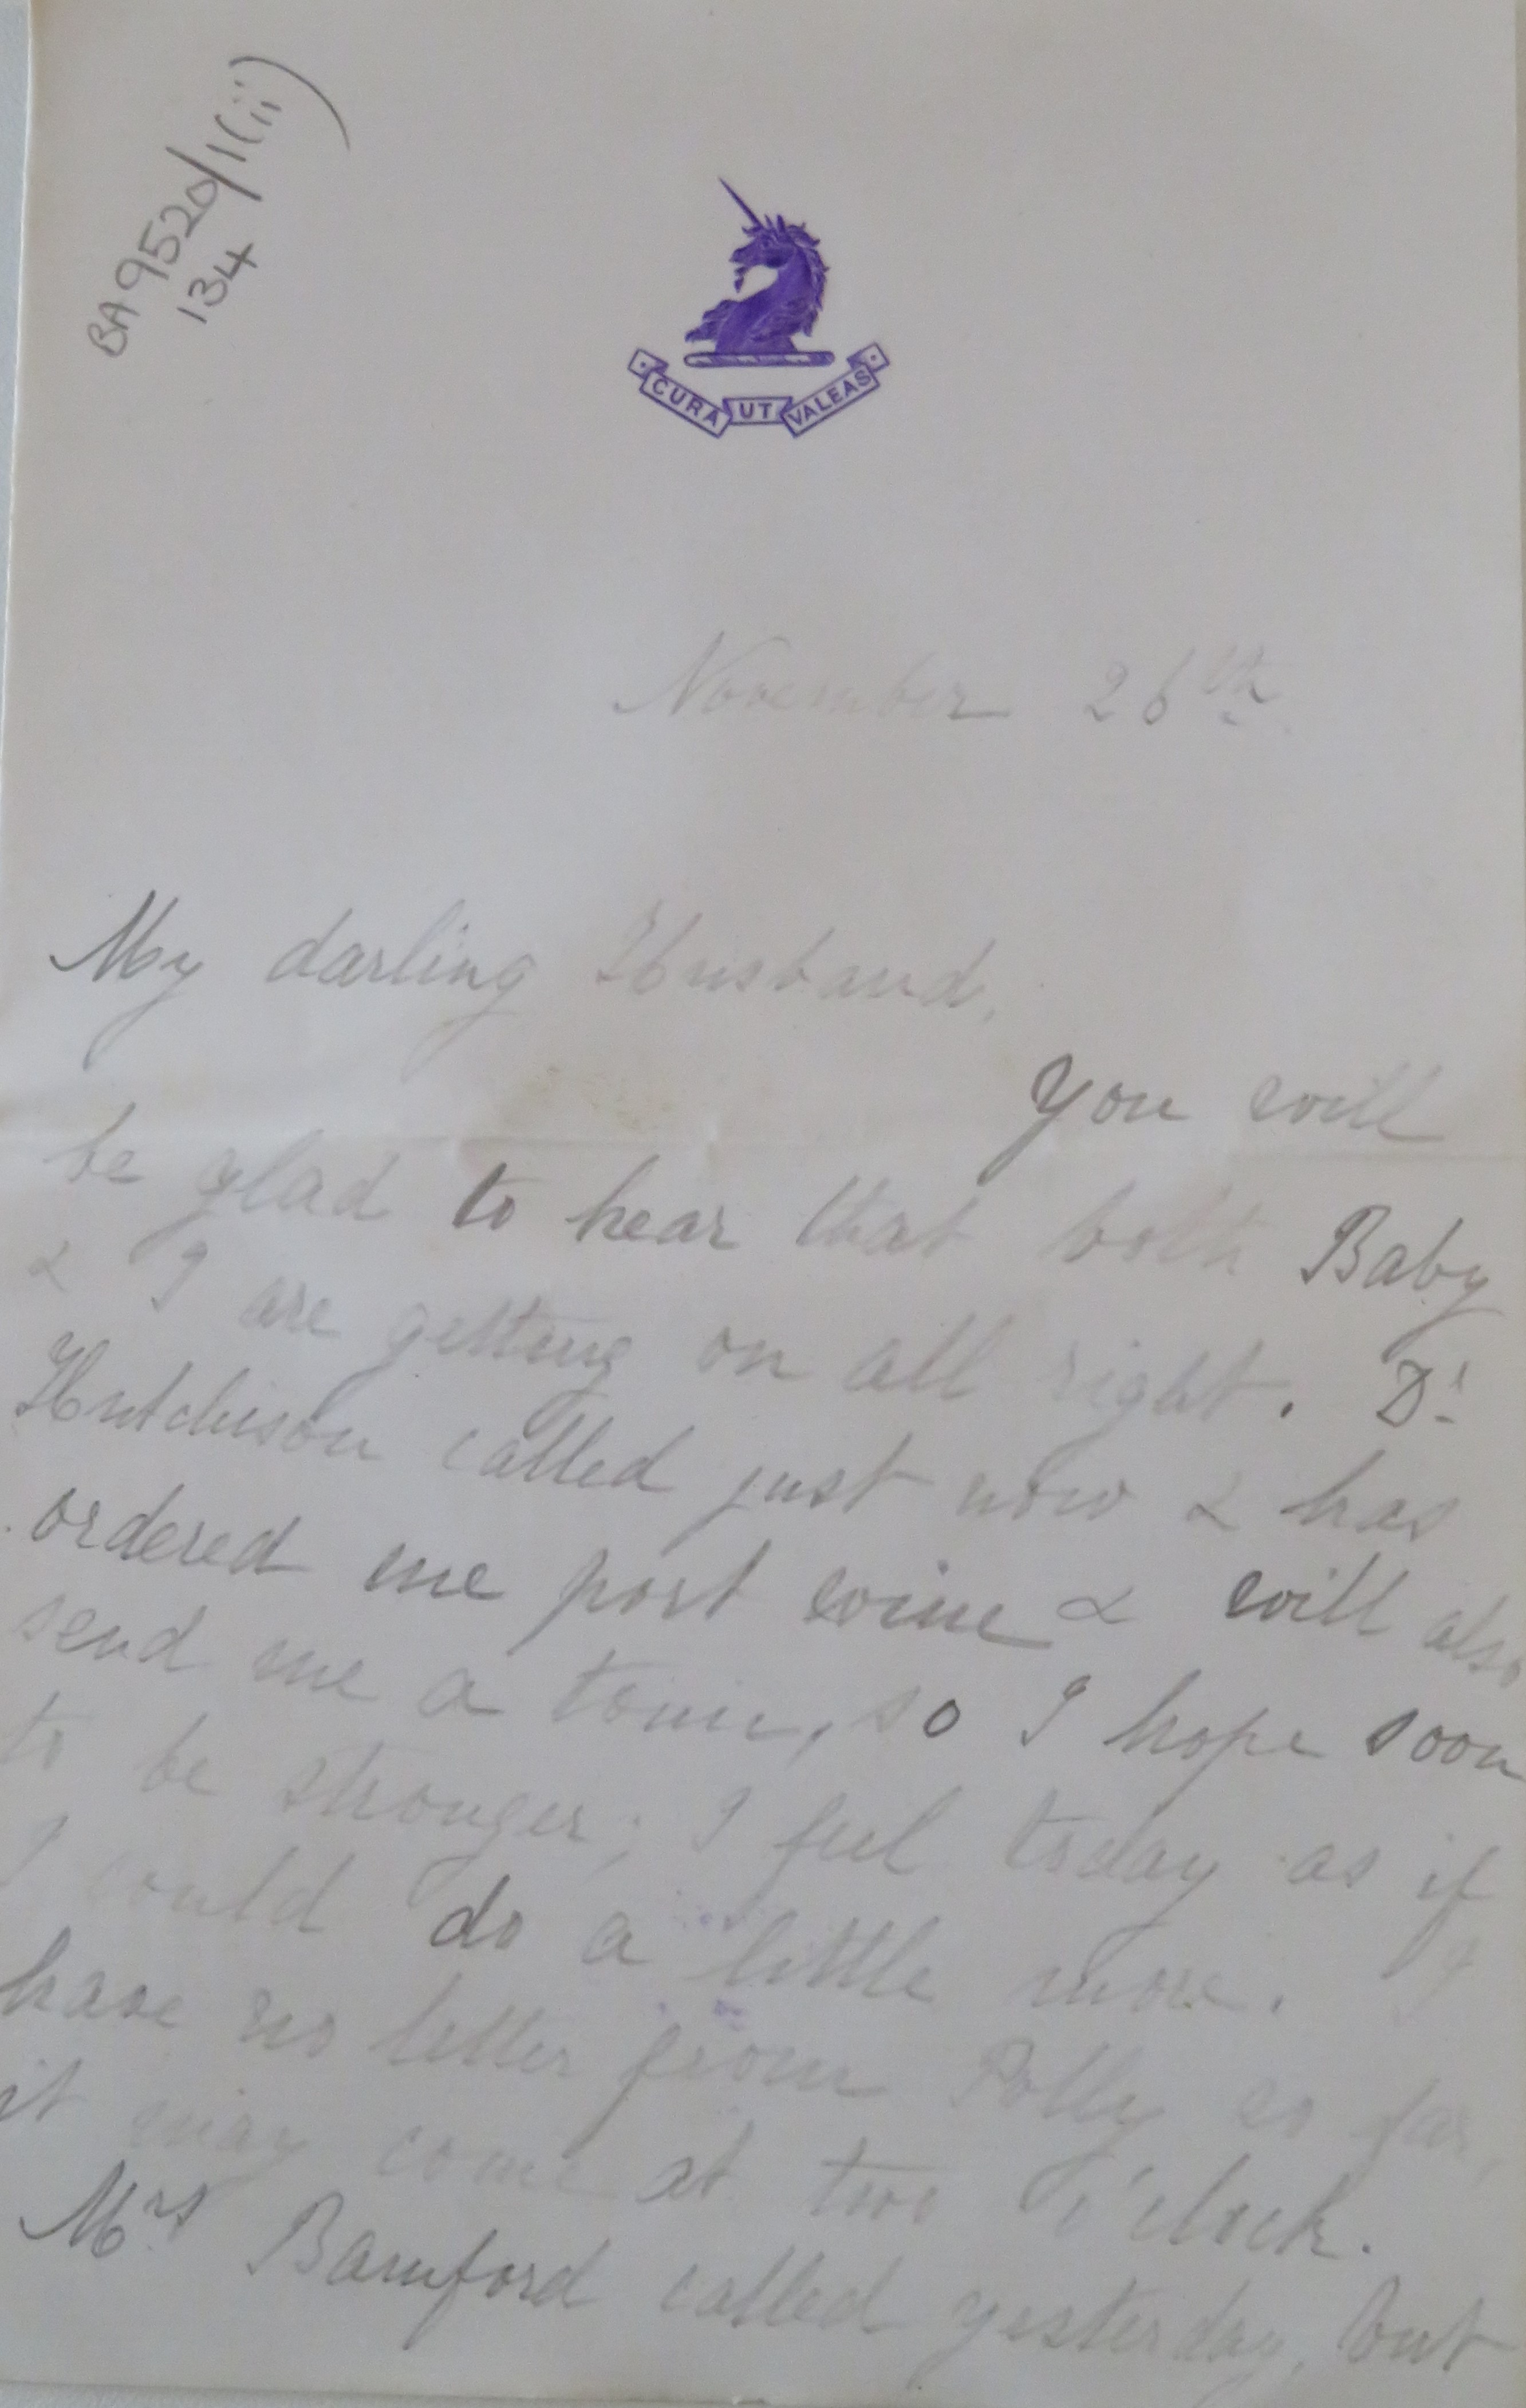 BA9520/1(ii)
134
CURA UT VALEAS
November 26th
My darling Husband,
You will
be glad to hear that both Baby
& I are getting on all right. Dr
Hutchison called just now & has
ordered me port wine & will also
send me a tonic, so I hope soon
to be stronger; I feel today as if
I could do a little more. I
have no letter from Polly so far,
it may come at two o'clock.
Mrs Bamford called yesterday, but